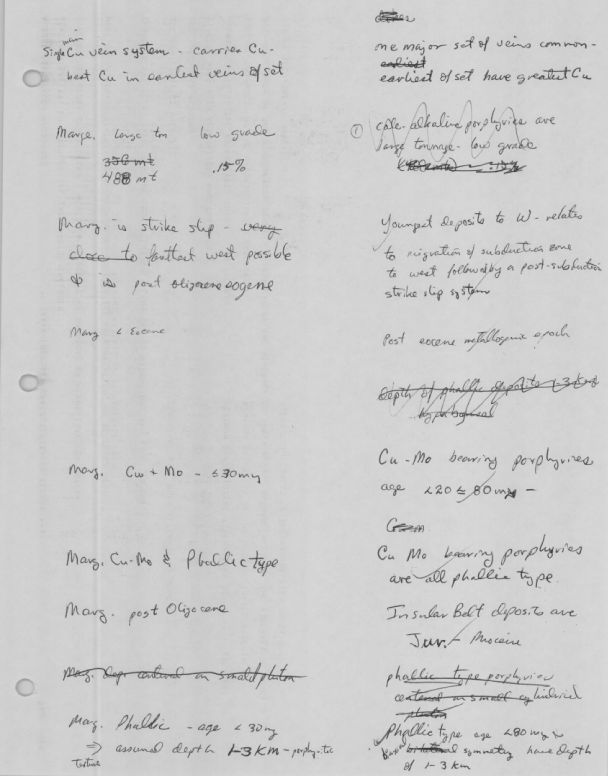 main
Single Cu vein system - carries Cu-
best Cu in earliest veins of set
one major set of veins common-
earliest
earliest of set have greatest Cu
Marge. Large tn low grade
350 mt
488 mt .15%
① calc-alkaline porphyries are
large tonnage - low grade
Marg. is strike slip - very
close to farthest west possible
& is post oligocene
Youngest deposits to W - relates
to migration of subduction zone
to west followed by a post-subduction
strike slip system
Marg < Eocene
Post eocene metallogenic epoch
Depth of phallic deposits 1-3 Km
hypabyssal
Marg. Cu + Mo - ≤30my
Cu-Mo bearing porphyries
age <20 ≤ 80 my -
Marg. Cu-Mo & Phallic type
Cu Mo bearing porphyries
are all phallic type.
Marg. post Oligocene
Insular Belt deposits are
Jur. - Miocene
Marg. depo centered on small pluton
phallic type porphyries
centered on small cylindrical
pluton
Marg. Phallic - age < 30my
⇒ assumed depth 1-3 KM - porphyritic
texture
Phallic type age <80 my
bilateral symmetry have depth
of 1-3 km